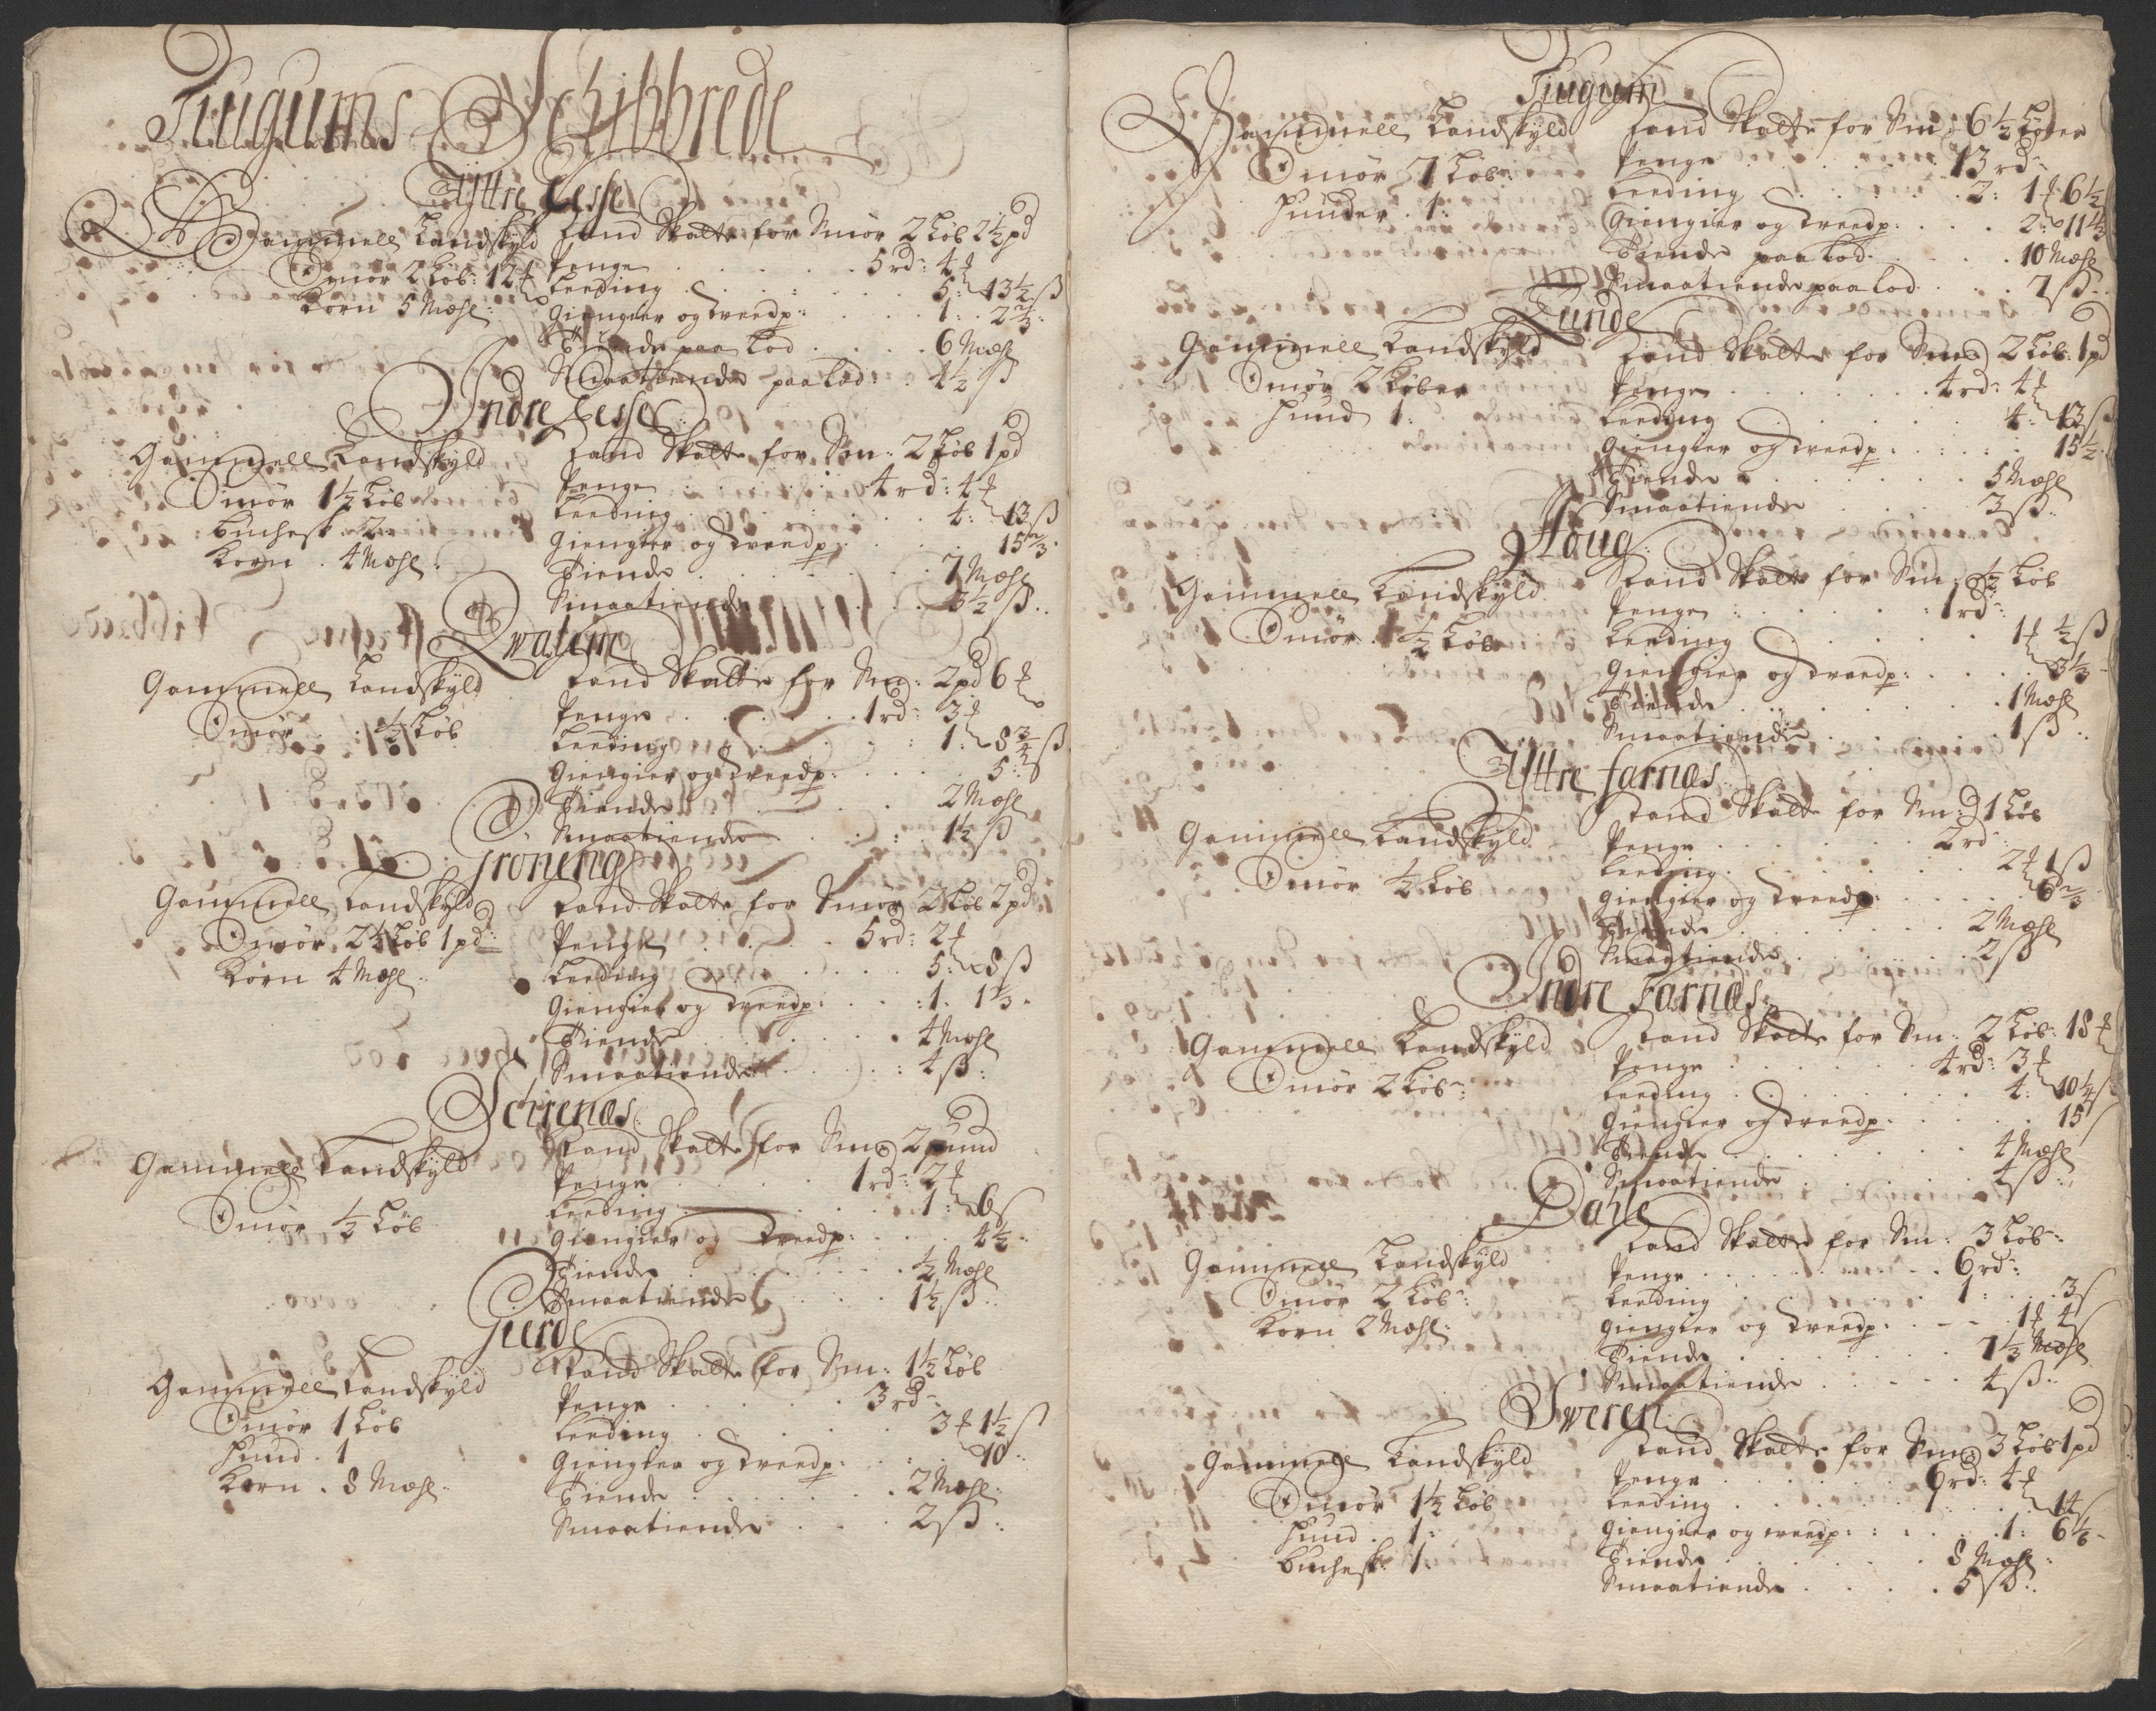 Tiugums Schibbrede
Yttre Eesse
Gammell Landskyld
Smør 2 Løb: 12
Korn 5 Mæhl:
Land Skatte for Smør 2 Løb 2½ pd
Penge . . . 5 rd: 4
Leeding . . . 5: 13½ ß
Giengier og dreedp: . . . 1: 2⅔:
Tiende paa Lod . . . 6 Mæhl
Smaatiende paa Lod: . 4½ ß
Indre Eesse
Gammell Landskyld
Smør 1½ Løb
buchesk: 2:
Korn . 4 Mæhl.
Land Skatte for Sm: 2 Løb 1 pd
Penge . . . 4 rd: 4
Leeding . . . 4: 13 ß
Giengier og dreedp: . . . 15⅔.
Tiende . . . 7 Mæhl
Smaatiende . . . 3½ ß.
Qwalem
Gammell Landskyld
Smør . ½ Løb
Land Skatte for Sm: 2 pd 6
Penge . . . 1 rd: 3
Leeding . . . 1: 8¾ ß
Giengier og dreedp: . . . 5:
Tiende . . . 2 Mæhl
Smaatiende . . . 1½ ß
Grøneng
Gammell Landskyld
Smør 2½ Løb 1 pd:
Korn 4 Mæhl:
Land Skatte for Smør 2 Løb 2 pd
Penge . . . 5 rd: 2
Leeding . . . 5: 8 ß
Giengier og dreedp: . . . 1: 1⅓.
Tiende . . . 4 Mæhl
Smaatiende . . . 4 ß:
Schrenæs
Gammell Landskyld
Smør ½ Løb
Land Skatte for Sm: 2 pund
Penge . . . 1 rd: 2
Leeding . . . 1: 6 ß
Giengier og dreedp: . . . 4½:
Tiende . . . ½ Mæhl
Smaatiende . . . 1½ ß:
Gierde
Gammell Landskyld
Smør 1 Løb
Hund . 1
Korn . 8 Mæhl:
Land Skatte for Sm: 1½ Løb
Penge . . . 3 rd:
Leeding . . . 3 1½ ß
Giengier og dreedp: . . . 10:
Tiende . . . 2 Mæhl:
Smaatiende . . . 2 ß:
Tiugum
Gammell Landskyld
Smør 7 Løb:
Hunder . 1:
Land Skatte for Sm: 6½ Løber
Penge . . . 13 rd:
Leeding . . . 2: 1 6½
Giengier og dreedp: . . . 2: 11⅓
Tiende paa Lod . . . 10 Mæhl
Smaatiende paa Lod . . . 7 ß:
Lunde
Gammell Landskyld
Smør 2 Løber
Hund 1:
Land Skatte for Sm: 2 Løb: 1 pd
Penge . . . 4 rd: 4
Leeding . . . 4: 13 ß
Giengier og dreedp: . . . 15½.
Tiende . . . 5 Mæhl
Smaatiende . . . 3 ß:
Houg
Gammell Landskyld
Smør . ½ Løb
Land Skatte for Sm: ½ Løb
Penge . . . 1 rd:
Leeding . . . 1 ½ ß
Giengier og dreedp: . . . 3⅓
Tiende . . . 1 Mæhl
Smaatiende . . . 1 ß:
Yttre farnæs
Gammell Landskyld
Smør ½ Løb
Land Skatte for Sm: 1 Løb
Penge . . . 2 rd:
Leeding . . . 2 1 ß
Giengier og dreedp: . . . 6⅔
Tiende . . . 2 Mæhl
Smaatiende . . . 2 ß
Indre Farnæs
Gammell Landskyld
Smør 2 Løb:
Land Skatte for Sm: 2 Løb: 18
Penge . . . 4 rd: 3
Leeding . . . 4: 10½ ß
Giengier og dreedp: . . . 15
Tiende . . . 4 Mæhl
Smaatiende . . . 4 ß:
Dahle
Gammell Landskyld
Smør 2 Løb:
Korn 2 Mæhl:
Land Skatte for Sm: 3 Løb:
Penge . . . 6 rd:
Leeding . . . 1: 3 ß
Giengier og dreedp: . . . 1 4 ß
Tiende . . . 7⅓ Mæhl
Smaatiende . . . 4 ß:
Sweren
Gammell Landskyld
Smør 1½ Løb
Hund . 1:
buchesk: 1:
Land Skatte for Sm: 3 Løb 1 pd
Penge . . . 6 rd: 4
Leeding . . . 14 ß
Giengier og dreedp: . . . 1: 6⅙
Tiende . . . 8 Mæhl:
Smaatiende . . . 5 ß: